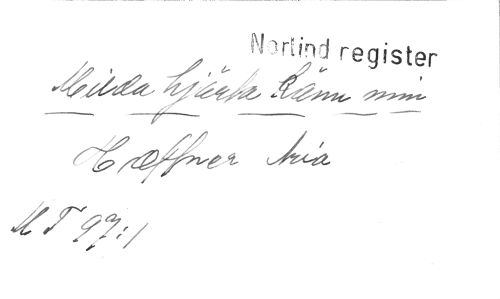 Nortind register
Milda hjärta känn min
Hæffner Aria
MT 97:1